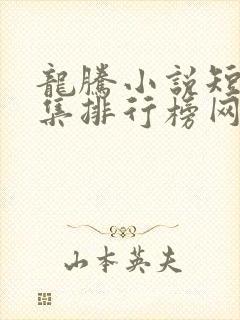 龍騰小說短
集排行榜网
山本英夫